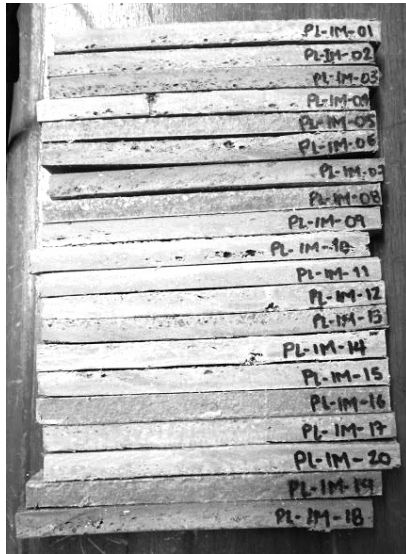 PL-IM-01
PL-IM-02
PL-IM-03
PL-IM-04
PL-IM-05
PL-IM-06
PL-IM-07
PL-IM-08
PL-IM-09
PL-IM-10
PL-IM-11
PL-IM-12
PL-IM-13
PL-IM-14
PL-IM-15
PL-IM-16
PL-IM-17
PL-IM-20
PL-IM-19
PL-IM-18